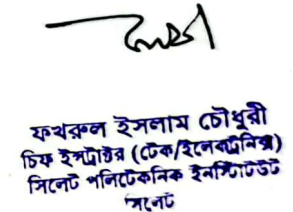 ফখরুল ইসলাম চৌধুরী
চিফ ইন্সট্রাক্টর (টেক/ইলেকট্রনিক্স)
সিলেট পলিটেকনিক ইনস্টিটিউট
সিলেট